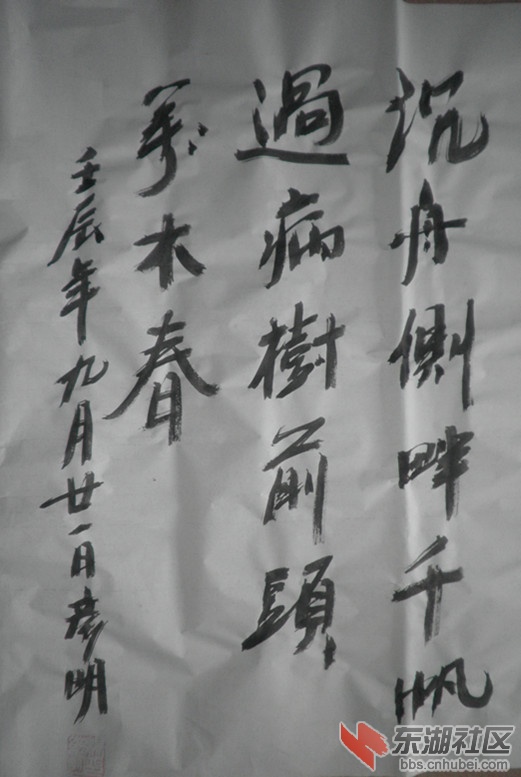 沉舟側畔千帆
過病樹前頭
萬木春
壬辰年九月廿一日彦明
东湖社区
bbs.cnhubei.com